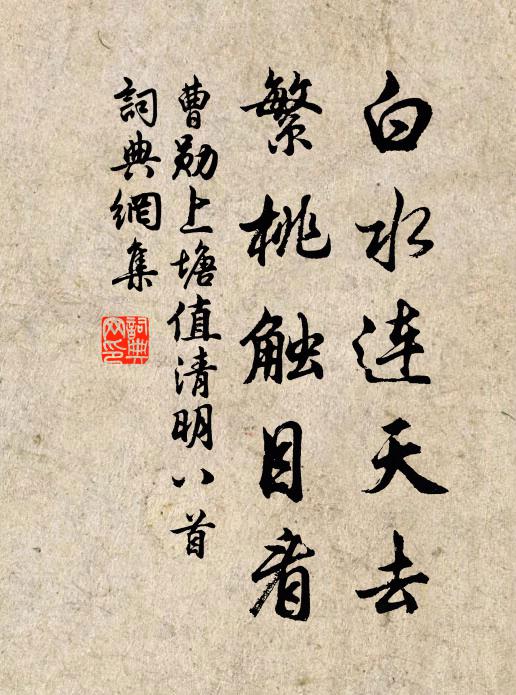 白水连天去
繁桃触目看
曹勋上塘值清明八首
詞典網集
詞典
网印